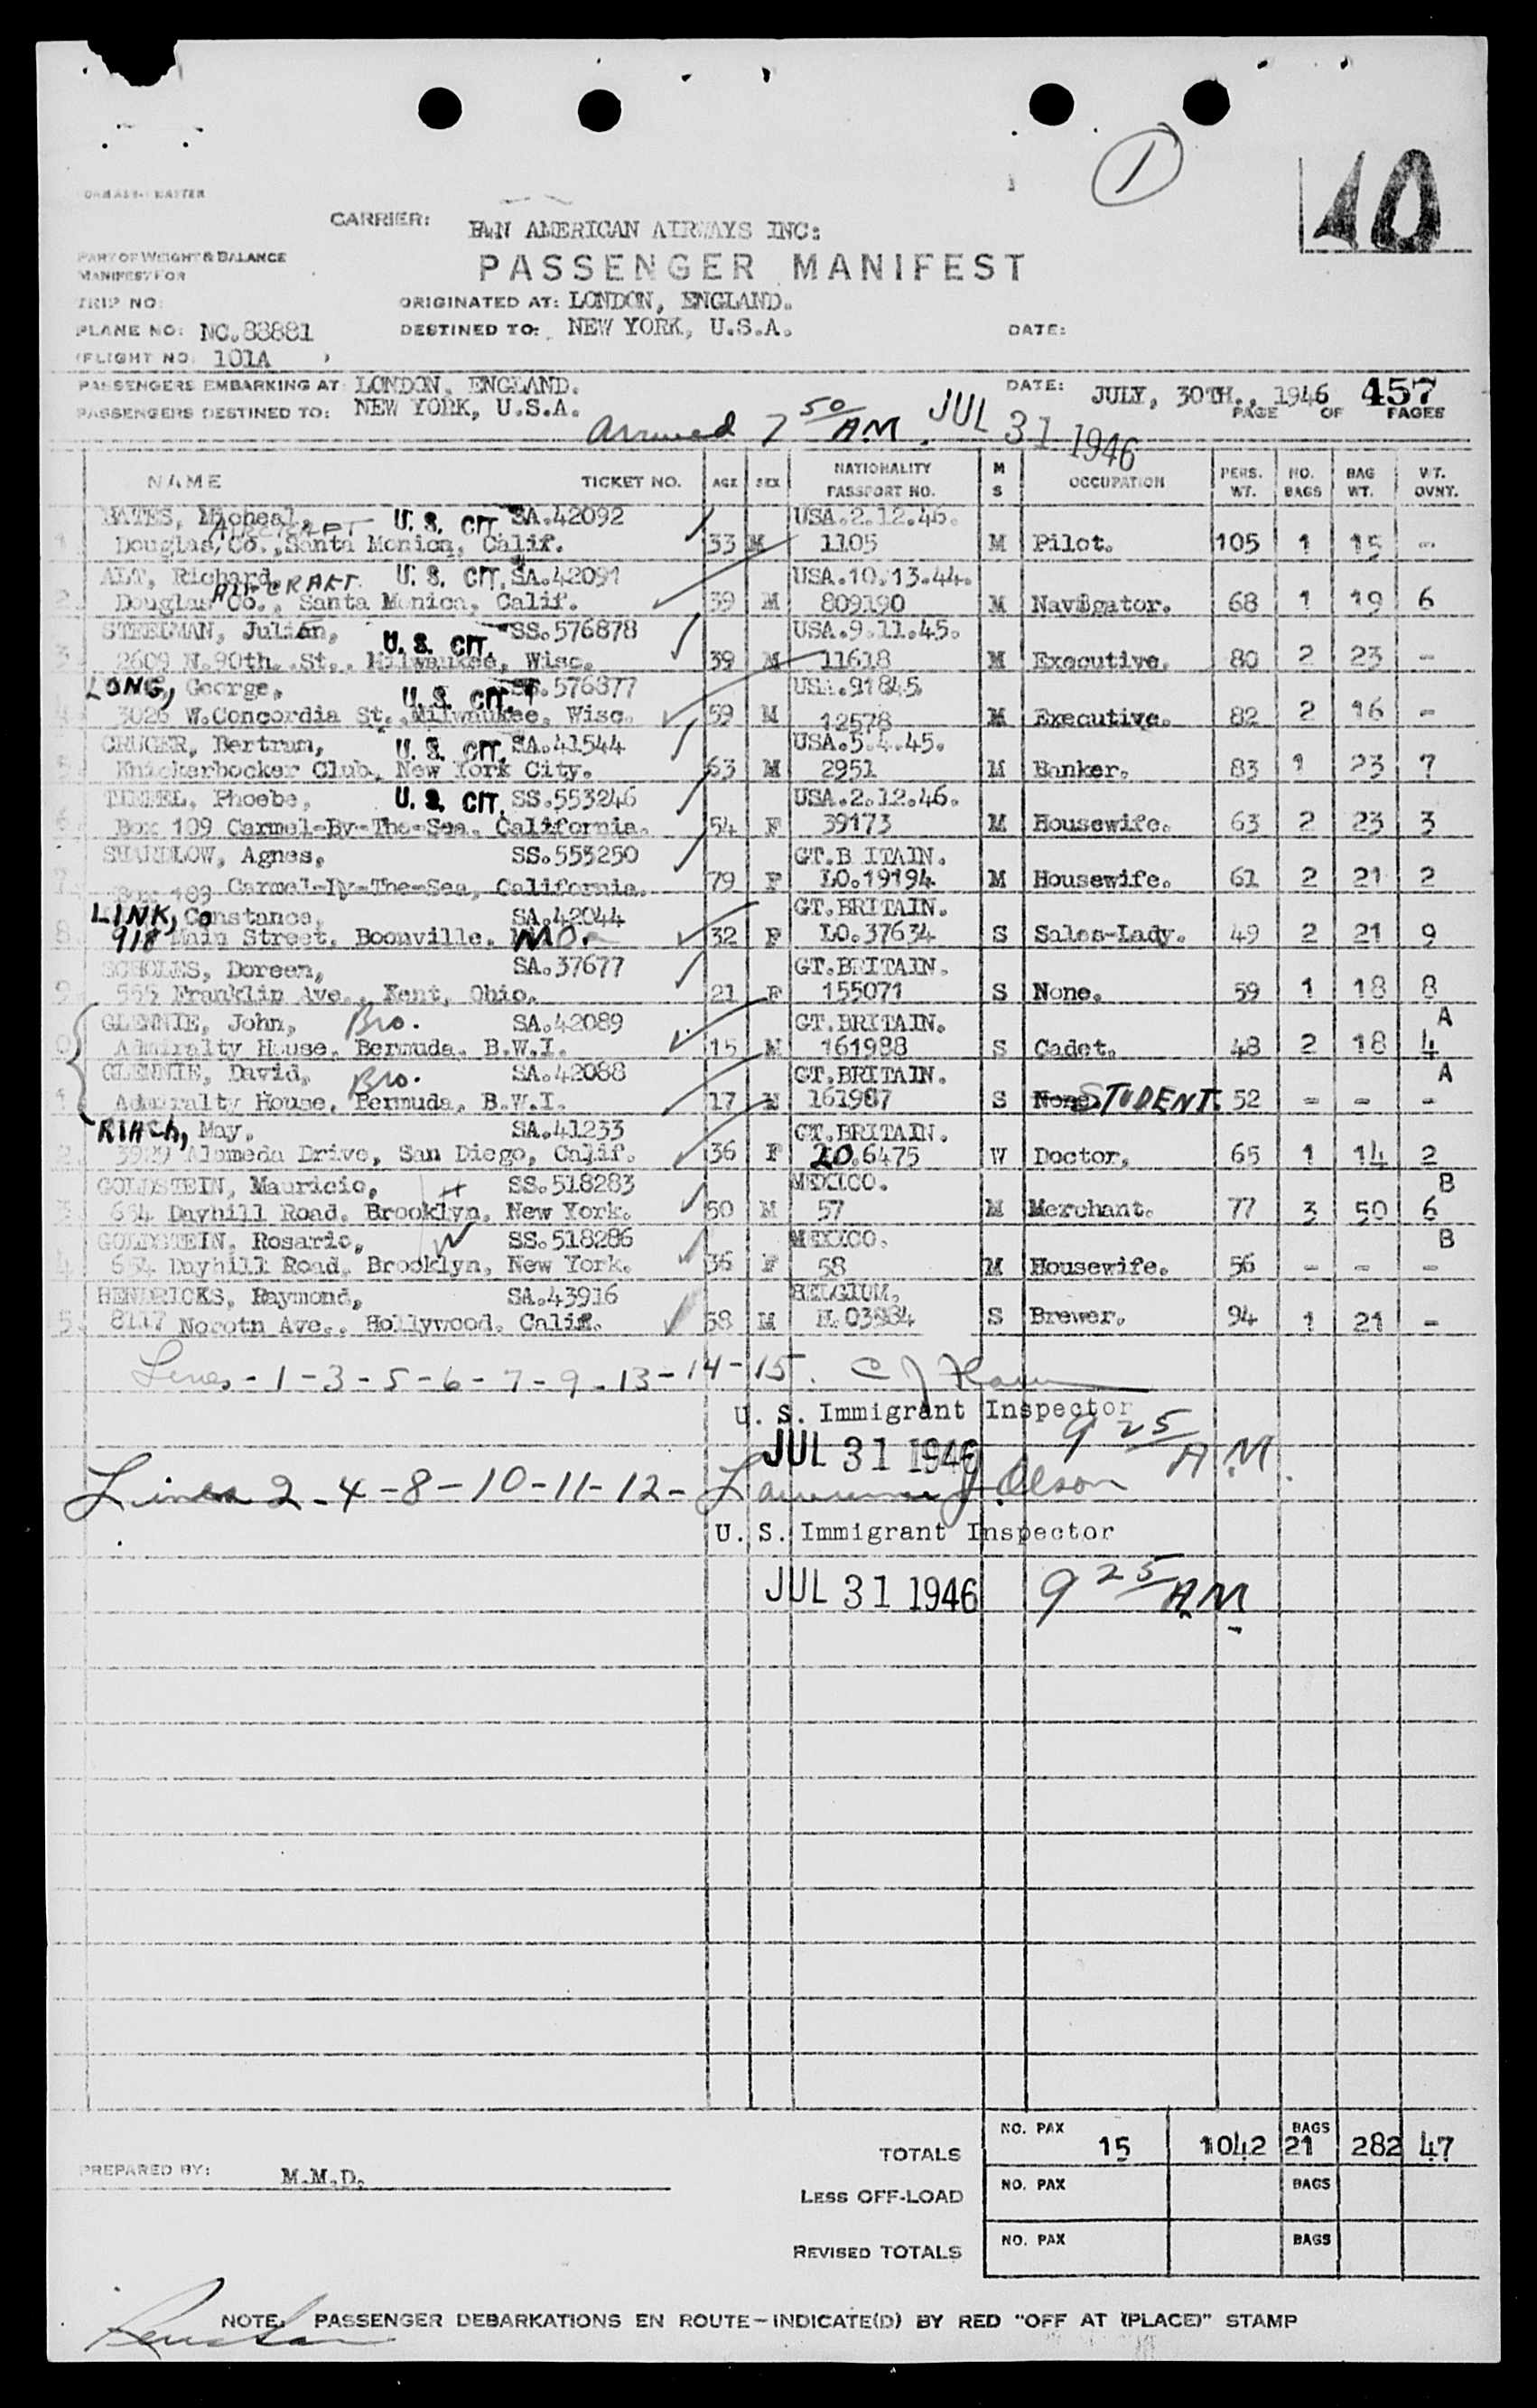 1
10
CARRIER: PAN AMERICAN AIRWAYS INC:
PART OF WEIGHT & BALANCE
MANIFEST FOR
PASSENGER MANIFEST
TRIP NO:
ORIGINATED AT: LONDON, ENGLAND.
PLANE NO: NC.88881
DESTINED TO: NEW YORK, U.S.A.
DATE:
(FLIGHT NO: 101A )
PASSENGERS EMBARKING AT: LONDON, ENGLAND.
DATE: JULY, 30TH., 1946
457
PASSENGERS DESTINED TO: NEW YORK, U.S.A.
PAGE OF PAGES
Arrived 7 50 A.M. JUL 31 1946
NAME TICKET NO. AGE SEX NATIONALITY PASSPORT NO. M S OCCUPATION PERS. WT. NO. BAGS BAG WT. WT. OVNT.
Micheal, U. S. CIT. SA.42092 USA.2.12.46.
AIRCRAFT
1 Douglas Co., Santa Monica, Calif. 33 M 1105 M Pilot. 105 1 15 -
ALT, Richard, U. S. CIT. SA.42091 USA.10.13.44.
AIRCRAFT
2 Douglas Co., Santa Monica, Calif. 39 M 809190 M Navigator. 68 1 19 6
Julian, U. S. CIT. SS.576878 USA.9.11.45.
3 2609 N.90th. St., Milwaukee, Wisc. 39 M 11618 M Executive. 80 2 23 -
LONG, George, U. S. CIT. SS.576877 USA.91845.
4 3026 W.Concordia St., Milwaukee, Wisc. 59 M 12578 M Executive. 82 2 16 -
CRUGER, Bertram, U. S. CIT. SA.41544 USA.5.4.45.
5 Knickerbocker Club, New York City. 63 M 2951 M Banker. 83 1 23 7
Phoebe, U. S. CIT. SS.553246 USA.2.12.46.
6 Box 109 Carmel-By-The-Sea, California. 54 F 39173 M Housewife. 63 2 23 3
SHARDLOW, Agnes, SS.553250 GT.B ITAIN.
7 Box 109 Carmel-By-The-Sea, California. 79 F LO.19194 M Housewife. 61 2 21 2
LINK, Constance, SA.42044 GT.BRITAIN.
8 918 Main Street, Boonville, MO. 32 F LO.37634 S Sales-Lady. 49 2 21 9
SCHOLES, Doreen, SA.37677 GT.BRITAIN.
9 Franklin Ave., Kent, Ohio. 21 F 155071 S None. 59 1 18 8
GLENNIE, John, Bro. SA.42089 GT.BRITAIN. A
0 Admiralty House, Bermuda, B.W.I. 15 M 161988 S Cadet. 48 2 18 4
GLENNIE, David, Bro. SA.42088 GT.BRITAIN. A
1 Admiralty House, Bermuda, B.W.I. 17 M 161987 S None. STUDENT. 52 - - -
RIACH, May, SA.41233 GT.BRITAIN.
2 3929 Alameda Drive, San Diego, Calif. 36 F LO.6475 W Doctor. 65 1 14 2
GOLDSTEIN, Mauricio, SS.518283 MEXICO. B
3 654 Dayhill Road, Brooklyn, New York. 50 M 57 M Merchant. 77 3 50 6
GOLDSTEIN, Rosario, SS.518286 MEXICO. B
4 654 Dayhill Road, Brooklyn, New York. 36 F 58 M Housewife. 56 - - -
HENDRICKS, Raymond, SA.43916 BELGIUM.
5 8117 Norotn Ave., Hollywood, Calif. 58 M S Brewer. 94 1 21 -
Lines - 1 - 3 - 5 - 6 - 7 - 9 - 13 - 14 - 15.
U. S. Immigrant Inspector
JUL 31 1946 9 25 A.M.
Lines 2 - 4 - 8 - 10 - 11 - 12 - Lawrence J Olson
U. S. Immigrant Inspector
JUL 31 1946 9 25 A.M.
TOTALS NO. PAX 15 1042 BAGS 21 282 47
PREPARED BY: M.M.D.
LESS OFF-LOAD NO. PAX BAGS
REVISED TOTALS NO. PAX BAGS
NOTE. PASSENGER DEBARKATIONS EN ROUTE—INDICATE(D) BY RED "OFF AT (PLACE)" STAMP